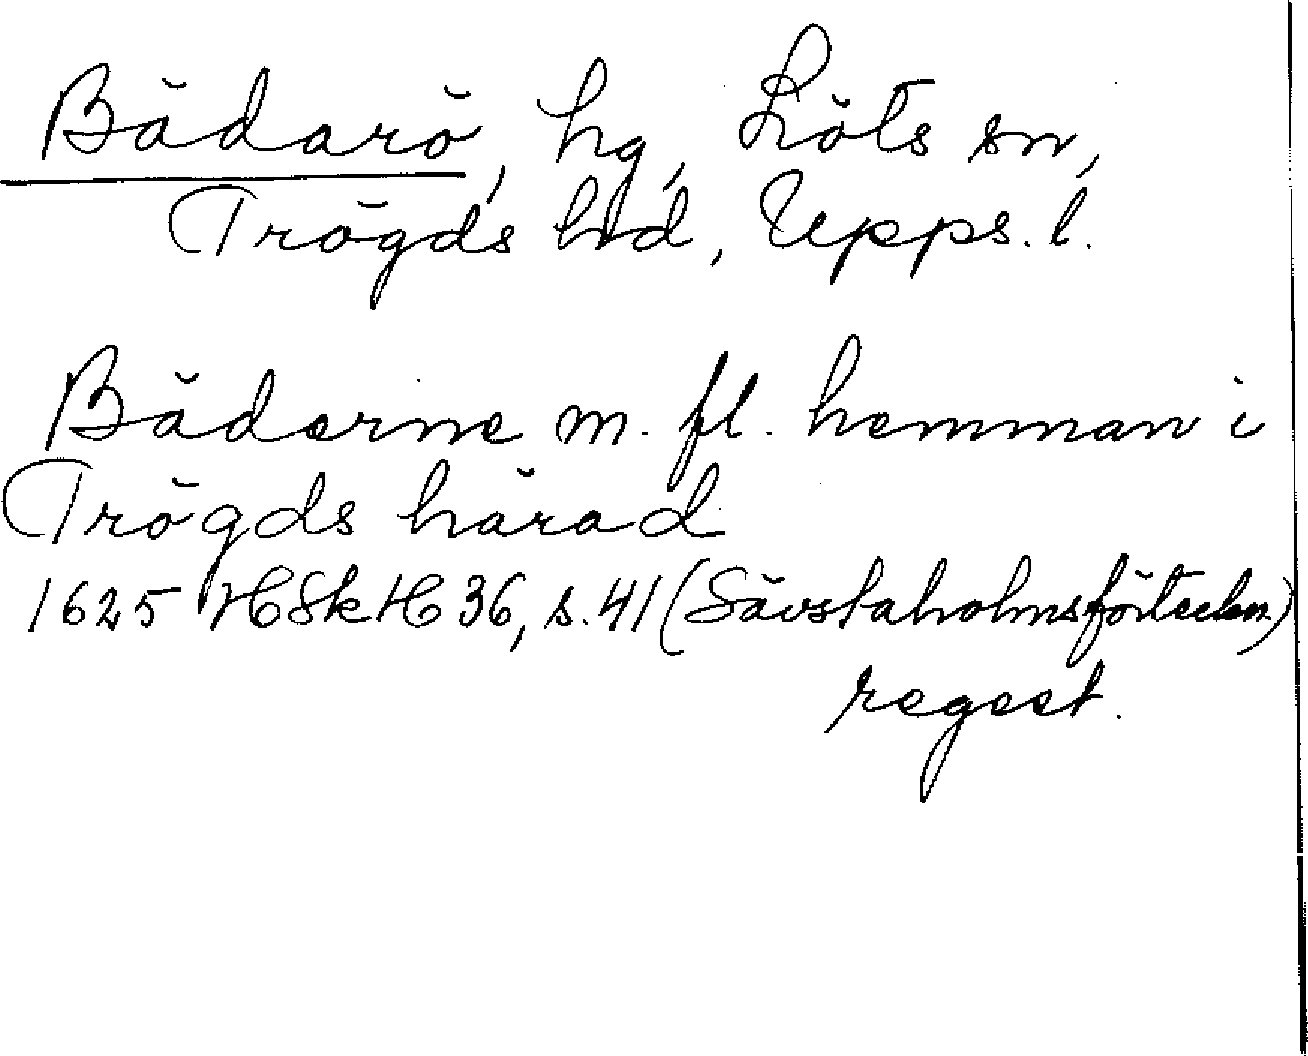 Bädarö, hg, Löts sn,
Trögds hd, Upps. l.
Bäderne m. fl. hemman i
Trögds härad
1625 HSkH 36, s. 41 (Sävstaholmsförteckn.)
regest.